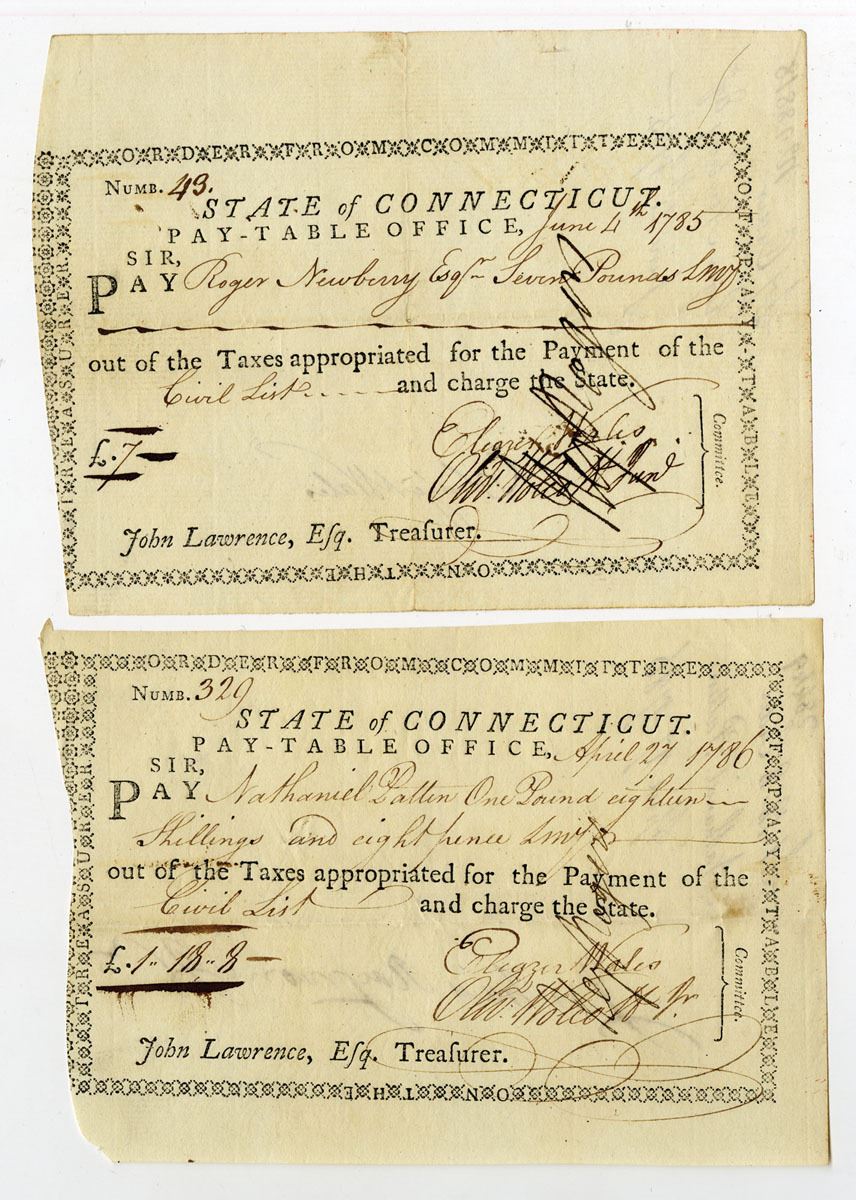 ORDER FROM COMMITTEE
OF PAY-TABLE
ON THE
TREASURER
NUMB. 43.
STATE of CONNECTICUT.
PAY-TABLE OFFICE, June 4th 1785
SIR,
PAY Roger Newberry Esqr Seven Pounds Lmy
out of the Taxes appropriated for the Payment of the
Civil List and charge the State.
£.7
Eleazer Wales
Olivr. Wolcott Junr
Committee.
John Lawrence, Eſq. Treaſurer.
ORDER FROM COMMITTEE
OF PAY-TABLE
ON THE
TREASURER
NUMB. 329
STATE of CONNECTICUT.
PAY-TABLE OFFICE, April 27 1786
SIR,
PAY Nathaniel Patten One Pound eighteen
Shillings and eight pence Lmy
out of the Taxes appropriated for the Payment of the
Civil List and charge the State.
£.1" 18" 8
Eleazer Wales
Olivr. Wolcott Jr.
Committee.
John Lawrence, Eſq. Treaſurer.